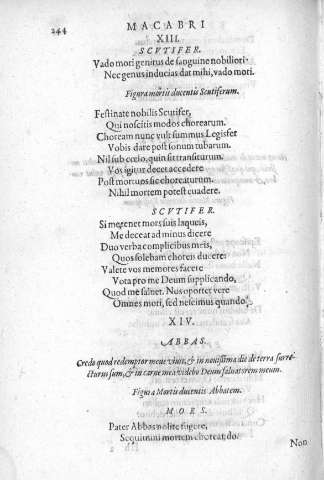 244
MACABRI
XIII.
SCVTIFER.
Vado mori genitus de sanguine nobiliori.
Nec genus inducias dat mihi, vado mori.
Figura mortis ducentis Scutiferum.
Festinate nobilis Scutifer,
Qui noscitis modos chorearum.
Choream nunc vult summus Legisfer
Vobis dare post sonum tubarum.
Nil sub cœlo, quin sit transiturum.
Vos igitur decet accedere
Post mortuos sic choreaturum.
Nihil mortem potest euadere.
SCVTIFER.
Si me tenet mors suis laqueis,
Me deceat ad minus dicere
Duo verba complicibus meis,
Quos solebam choreis ducere:
Valete vos memores facere
Vota pro me Deum supplicando,
Quod me saluet. Nos oportet vere
Omnes mori, sed nescimus quando.
XIV.
ABBAS.
Credo quod redemptor meus viuit, & in nouissima die de terra surre-
cturus sum, & in carne mea videbo Deum saluatorem meum.
Figura Mortis ducentis Abbatem.
MORS.
Pater Abbas nolite fugere,
Sequimini mortem choreando.
Non